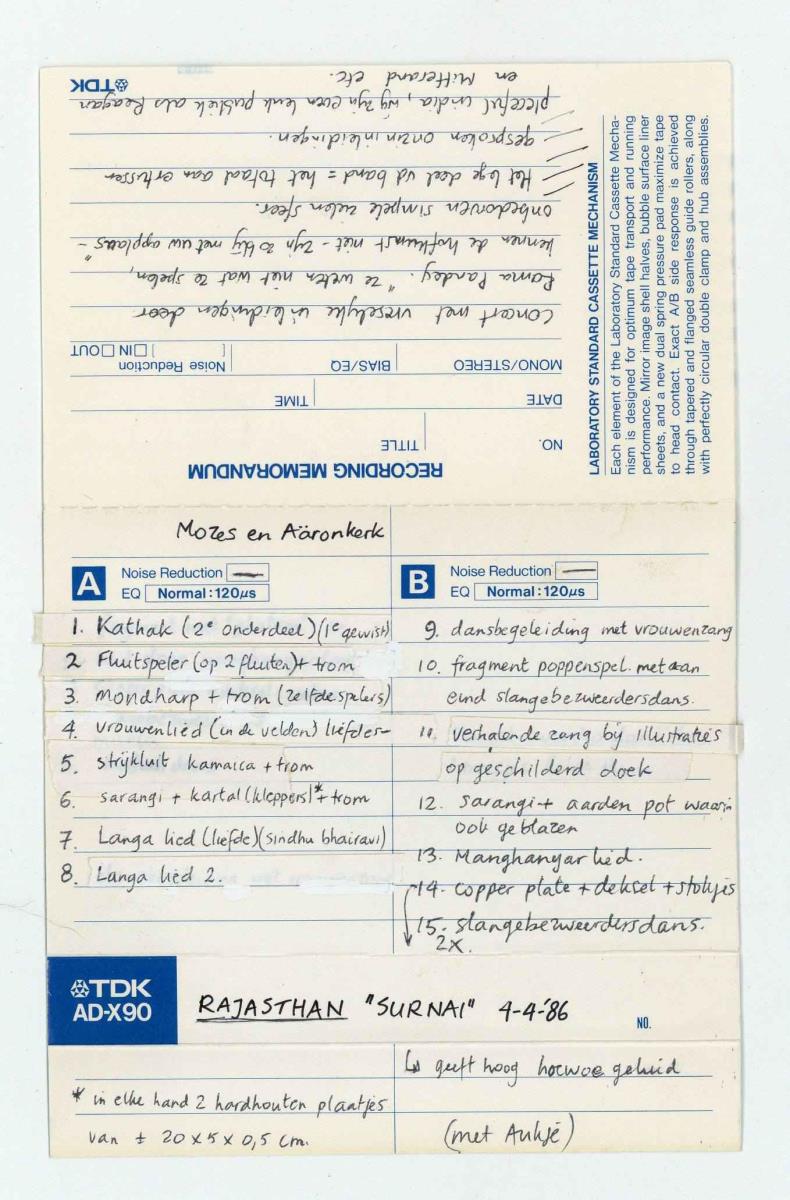 TDK
en Mitterand etc.
pleceful india, wij zijn even leuk publiek als Reagan
gesproken onzin inleidingen.
Het lege deel vd band = het totaal aan ertussen
onbedorven simpele zielen sfeer.
kennen de hofkunst niet - zijn zo blij met uw applaus -"
Rama Pandey. "ze weten niet wat ze spelen,
Concert met vreselijke inleidingen door
MONO/STEREO BIAS/EQ Noise Reduction [ ] IN OUT
DATE TIME
NO. TITLE
RECORDING MEMORANDUM
LABORATORY STANDARD CASSETTE MECHANISM
Each element of the Laboratory Standard Cassette Mecha-
nism is designed for optimum tape transport and running
performance. Mirror image shell halves, bubble surface liner
sheets, and a new dual spring pressure pad maximize tape
to head contact. Exact A/B side response is achieved
through tapered and flanged seamless guide rollers, along
with perfectly circular double clamp and hub assemblies.
Mozes en Aäronkerk
A Noise Reduction —
EQ Normal:120μs
1. Kathak (2e onderdeel)(1e gewist)
2 Fluitspeler (op 2 fluiten) + trom
3. mondharp + trom (zelfde spelers)
4. vrouwenlied (in de velden) liefdes-
5. strijkluit kamaica + trom
6. sarangi + kartal (kleppers)* + trom
7. Langa lied (liefde)(sindhu bhairavi)
8. Langa lied 2.
B Noise Reduction —
EQ Normal:120μs
9. dansbegeleiding met vrouwenzang
10. fragment poppenspel. met aan
eind slangebezweerdersdans.
11. verhalende zang bij illustraties
op geschilderd doek
12. Sarangi + aarden pot waarin
ook geblazen
13. Manghanyar lied.
14. copper plate + deksel + stokjes
15. slangebezweerdersdans.
2x.
TDK
AD-X90
RAJASTHAN "SURNAI" 4-4-'86
NO.
* in elke hand 2 hardhouten plaatjes
van ± 20 x 5 x 0,5 cm.
↳ geeft hoog hoewoe geluid
(met Aukje)